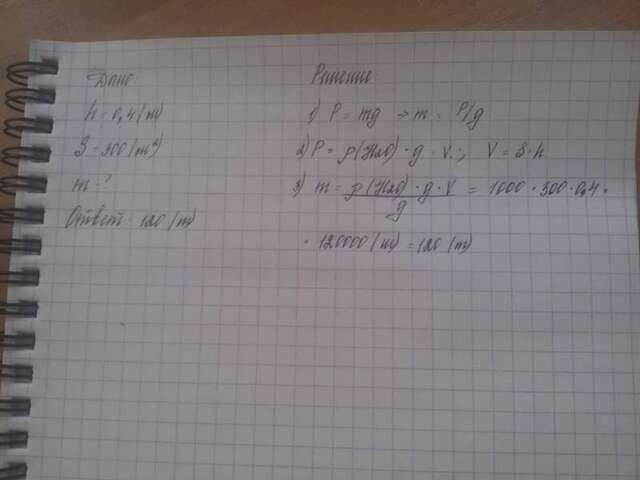 Дано
h = 0,4 (м)
S = 300 (m²)
m - ?
Ответ: 120 (т)
Решение:
1) P = mg → m = P/g
2) P = ρ(H2O) · g · V.; V = S·h
3) m = ρ(H2O) · g · V / g = 1000 · 300 · 0,4 =
= 120000 (кг) = 120 (т)